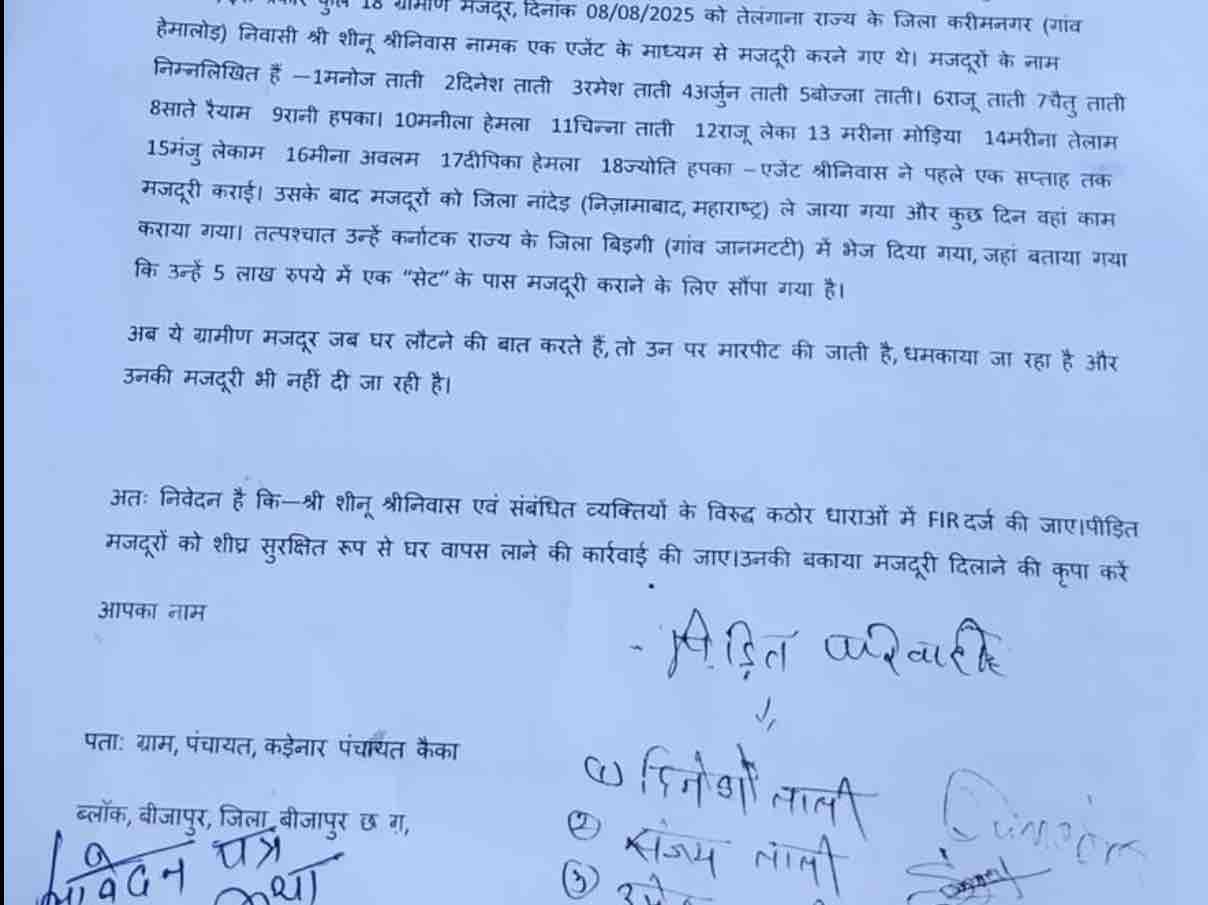 कुल 18 ग्रामीण मजदूर, दिनांक 08/08/2025 को तेलंगाना राज्य के जिला करीमनगर (गांव
हेमालोड) निवासी श्री शीनू श्रीनिवास नामक एक एजेंट के माध्यम से मजदूरी करने गए थे। मजदूरों के नाम
निम्नलिखित हैं –1मनोज ताती 2दिनेश ताती 3रमेश ताती 4अर्जुन ताती 5बोज्जा ताती। 6राजू ताती 7चैतु ताती
8साते रैयाम 9रानी हपका। 10मनीला हेमला 11चिन्ना ताती 12राजू लेका 13 मरीना मोड़िया 14मरीना तेलाम
15मंजु लेकाम 16मीना अवलम 17दीपिका हेमला 18ज्योति हपका – एजेंट श्रीनिवास ने पहले एक सप्ताह तक
मजदूरी कराई। उसके बाद मजदूरों को जिला नांदेड़ (निज़ामाबाद, महाराष्ट्र) ले जाया गया और कुछ दिन वहां काम
कराया गया। तत्पश्चात उन्हें कर्नाटक राज्य के जिला बिड़गी (गांव जानमटटी) में भेज दिया गया, जहां बताया गया
कि उन्हें 5 लाख रुपये में एक “सेट” के पास मजदूरी कराने के लिए सौंपा गया है।
अब ये ग्रामीण मजदूर जब घर लौटने की बात करते हैं, तो उन पर मारपीट की जाती है, धमकाया जा रहा है और
उनकी मजदूरी भी नहीं दी जा रही है।
अतः निवेदन है कि–श्री शीनू श्रीनिवास एवं संबंधित व्यक्तियों के विरुद्ध कठोर धाराओं में FIR दर्ज की जाए।पीड़ित
मजदूरों को शीघ्र सुरक्षित रूप से घर वापस लाने की कार्रवाई की जाए।उनकी बकाया मजदूरी दिलाने की कृपा करें
आपका नाम
- पिड़ित
पता: ग्राम, पंचायत, कड़ेनार पंचायत कैका
(1) दिनेश ताती
ब्लॉक, बीजापुर, जिला बीजापुर छ ग,
(2) संजय ताती
आवेदन पत्र
(3)